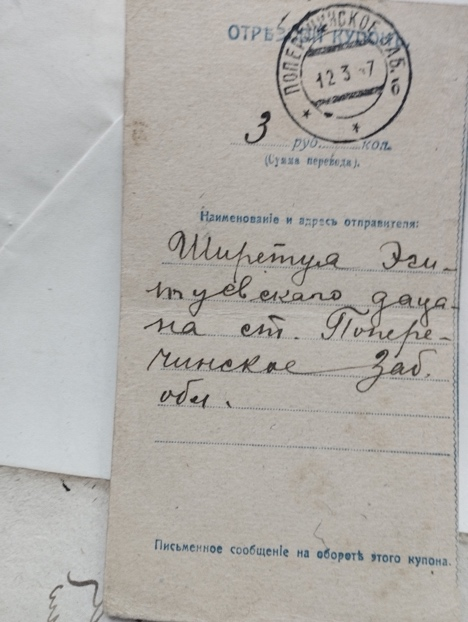 ОТРѢЗНОЙ КУПОНЪ.
ПОПЕРЕЧИНСКОЕ ЗАБ.
12 3 7
б
3 руб. коп.
(Сумма перевода).
Наименованіе и адресъ отправителя:
Ширетуя Эги-
туевскаго даца-
на ст. Попере-
чинское Заб.
обл.
Письменное сообщеніе на оборотѣ этого купона.